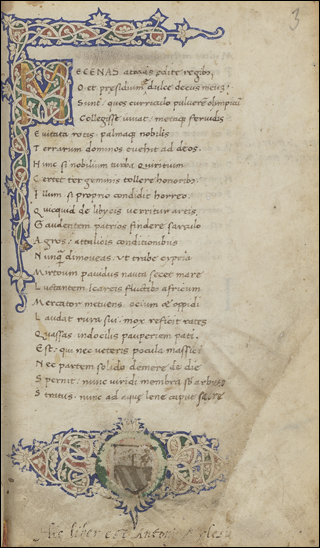 3
MECENAS atavis edite regibus
O et presidium & dulce decus meum:
Sunt quos curriculo pulverem olimpicum
Collegisse iuvat: metaque fervidis
Evitata rotis. palmaque nobilis
Terrarum dominos evehit ad deos.
Hunc si nobilium turba quiritium
Certet tergeminis tollere honoribus
Illum si proprio condidit horreo
Quicquid de libycis verritur areis
Gaudentem patrios findere sarculo
Agros: attalicis conditionibus
Nunquam dimoveas. ut trabe cypria
Mirtoum pavidus nauta secet mare
Luctantem Icareis fluctibus africum
Mercator metuens. ocium & oppidi
Laudat rura sui. mox reficit rates
Quassas indocilis pauperiem pati.
Est. qui nec veteris pocula massici
Nec partem solido demere de die
Spernit. nunc viridi membra sub arbuto
Stratus. nunc ad aque lene caput sacre
liber est Antonij